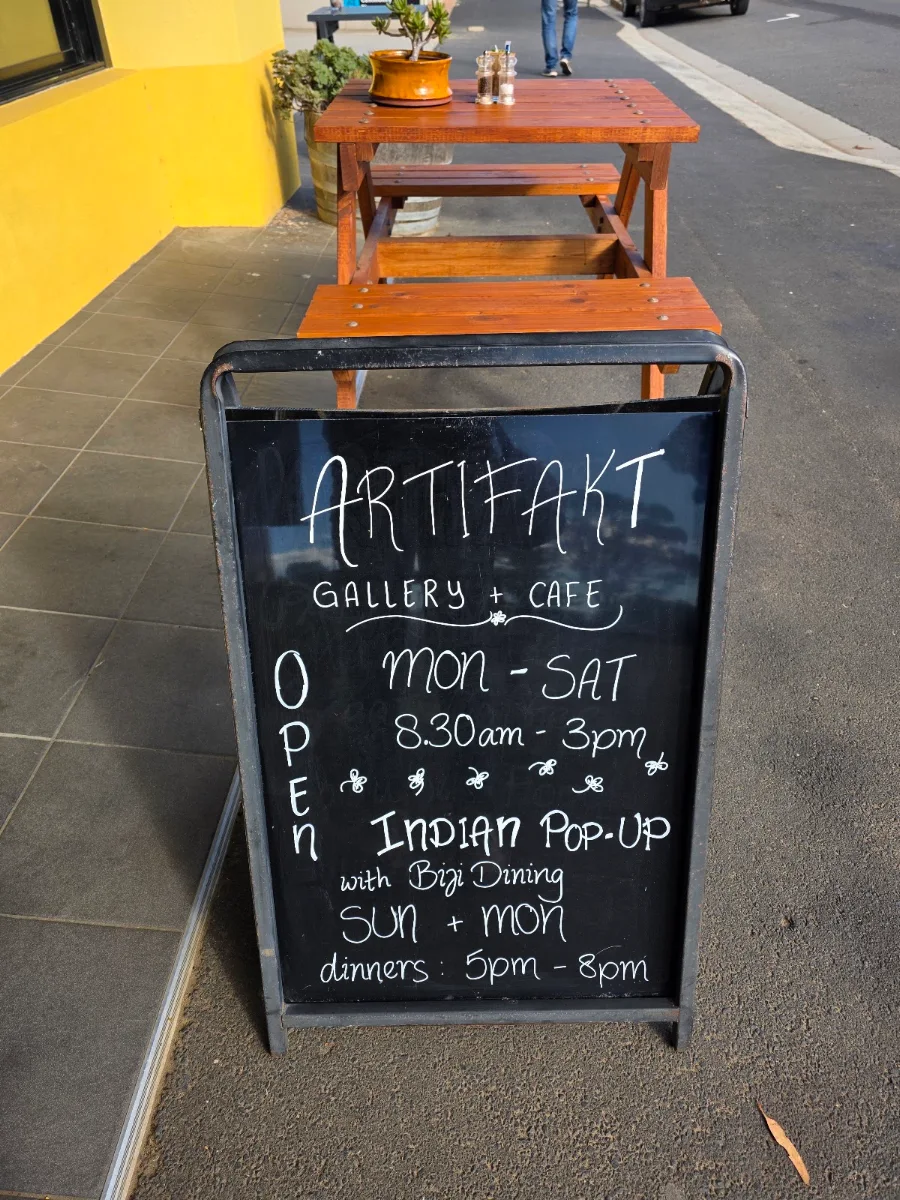 ARTIFAKT
GALLERY + CAFE
OPEn
mOn - SAT
8.30am - 3pm
InDIAn POP-UP
with Biji Dining
SUn + mOn
dinners: 5pm - 8pm